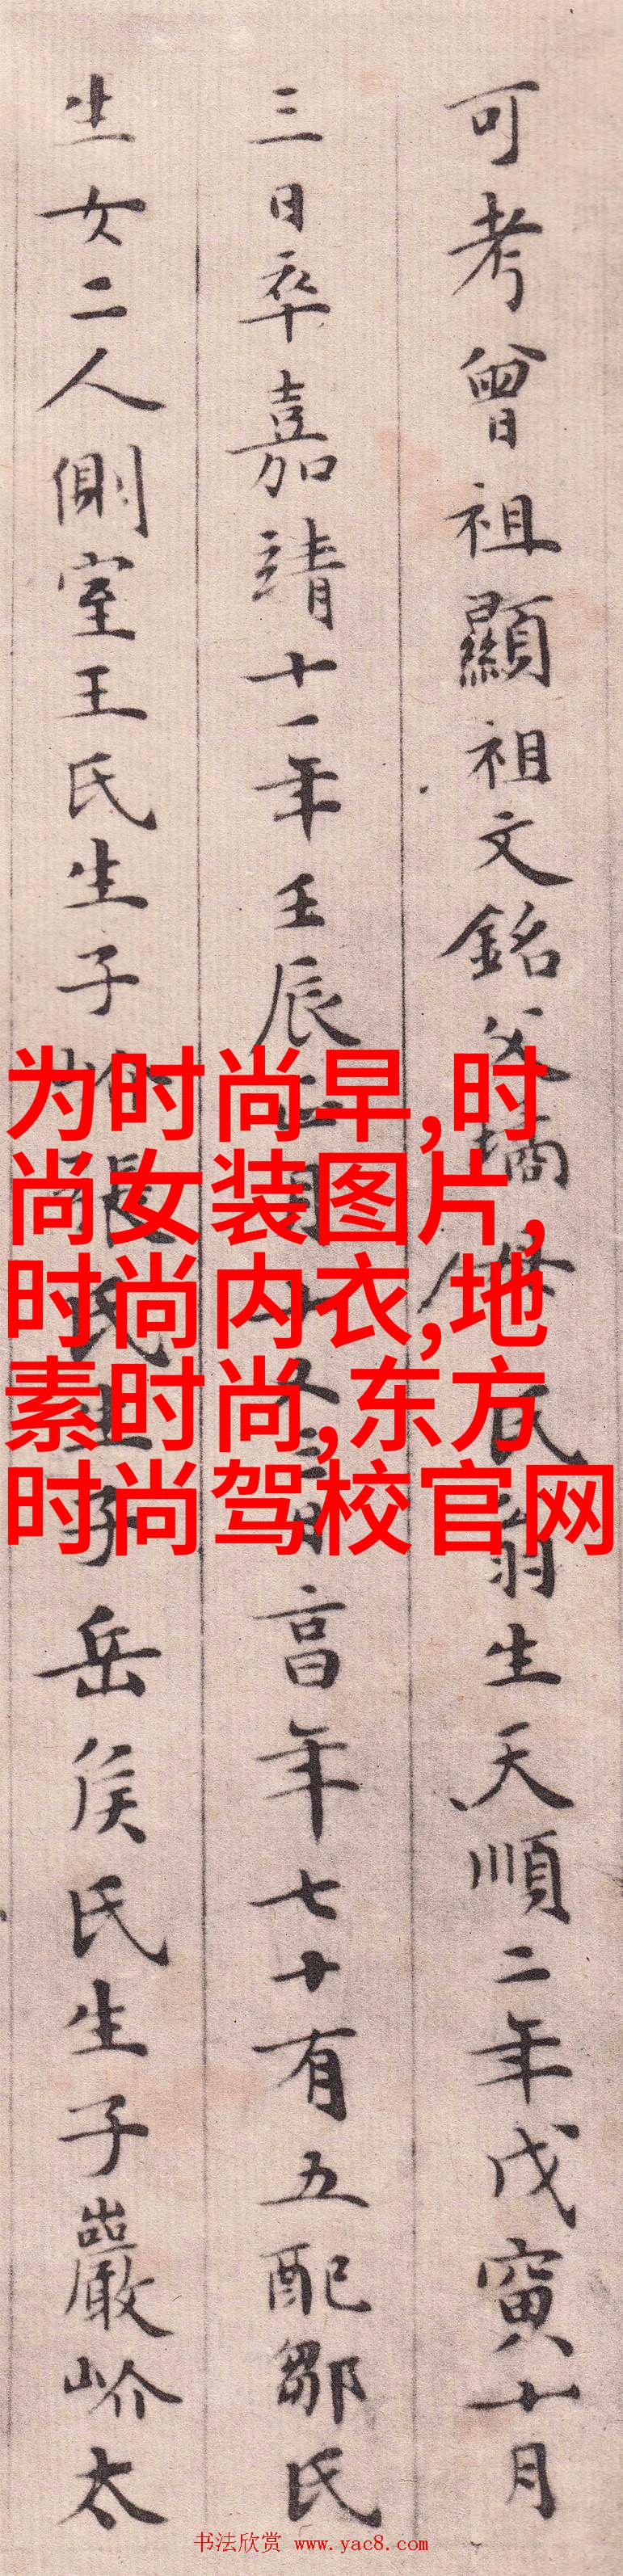 可考曾祖顯祖文銘父墒母氏翁生天順二年戊寅十月
三日卒嘉靖十一年壬辰正月十又三日言年七十有五配鄒氏
生女二人側室王氏生子張氏生子岳侯氏生子巖岕太
为时尚早,时
尚女装图片,
时尚内衣,地
素时尚,东方
时尚驾校官网
书法欣赏 www.yac8.com